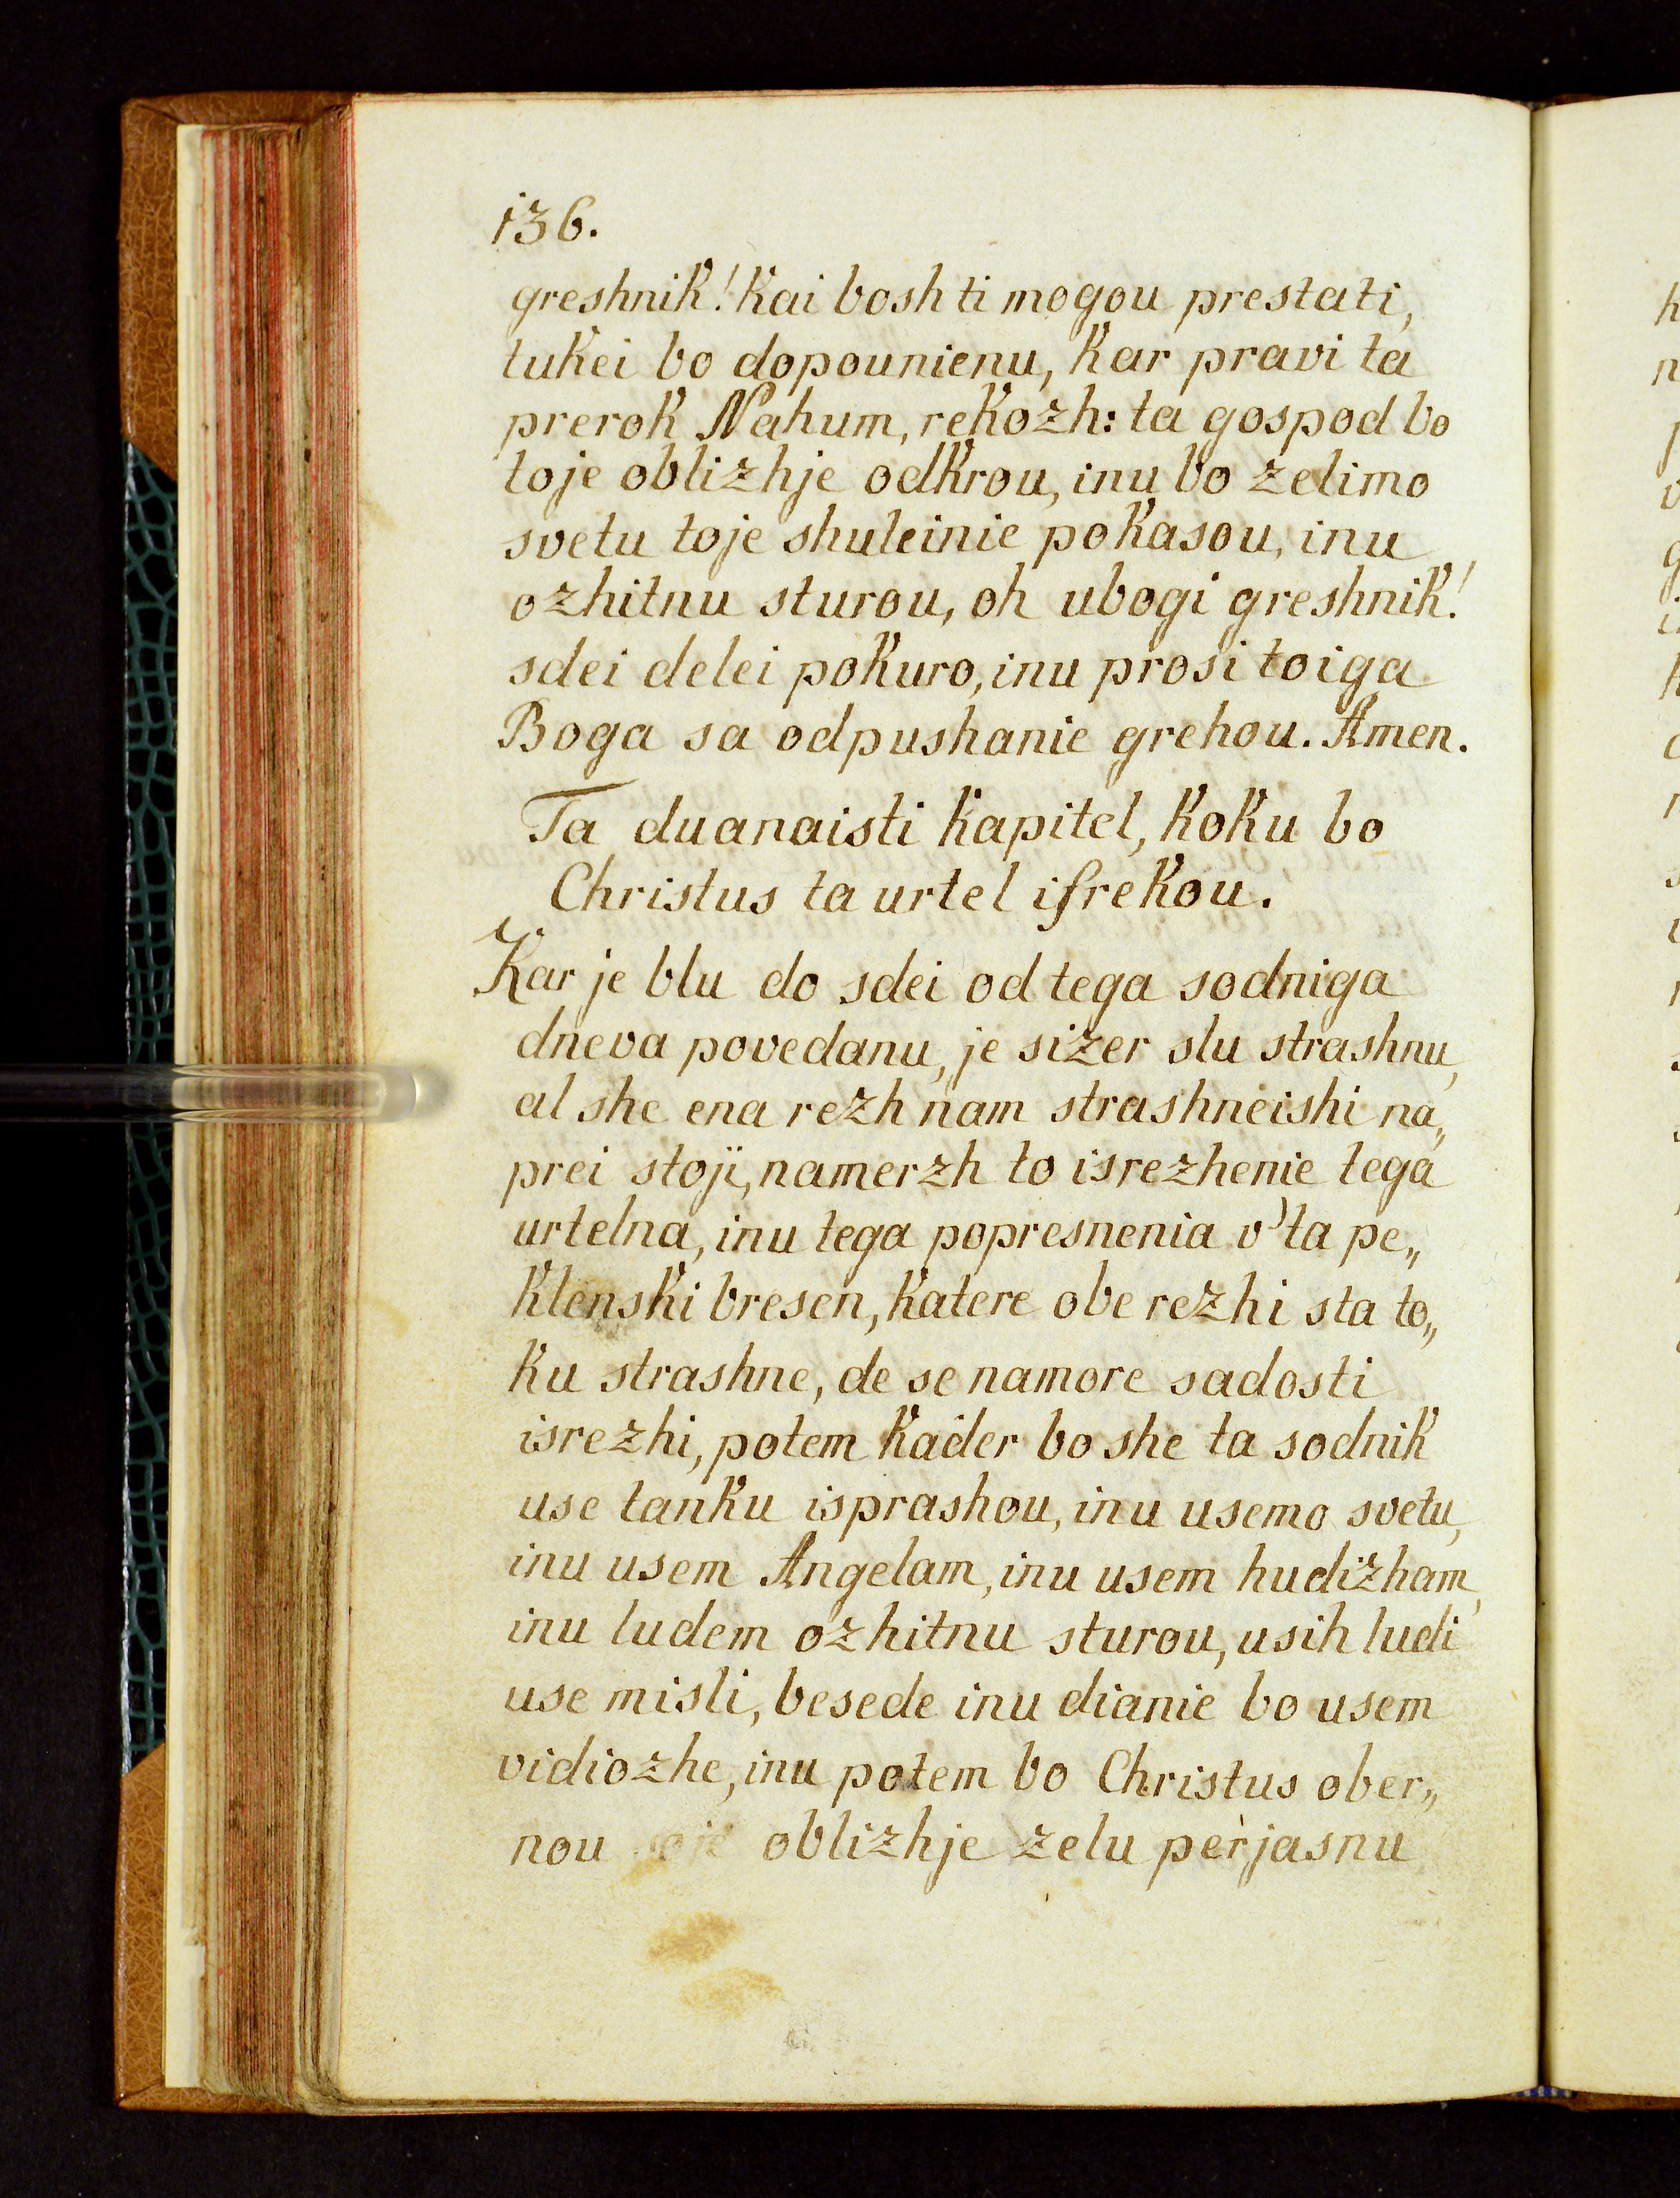 136.
greshnik! kai bosh ti mogou prestati,
tukei bo dopounienu, kar pravi ta
prerok Nahum, rekozh: ta gospod bo
toje oblizhje odkrou, inu bo zelimo
svetu toje shuleinie pokasou, inu
ozhitnu sturou, oh ubogi greshnik!
sdei delei pokuro, inu prosi toiga
Boga sa odpushanie grehou. Amen.
Ta duanaisti kapitel, koku bo
Christus ta urtel iſrekou.
Kar je blu do sdei od tega sodniga
dneva povedanu, je sizer slu strashnu,
al she ena rezh nam strashneishi na„
prei stoji, namerzh to isrezhenie tega
urtelna, inu tega popresnenia v'ta pe„
klenski bresen, katere obe rezhi sta to„
ku strashne, de se namore sadosti
isrezhi, potem kader bo she ta sodnik
use tanku isprashou, inu usemo svetu,
inu usem Angelam, inu usem hudizham,
inu ludem ozhitnu sturou, usih ludi
use misli, besede inu dianie bo usem
vidiozhe, inu potem bo Christus ober„
nou oblizhje zelu perjasnu